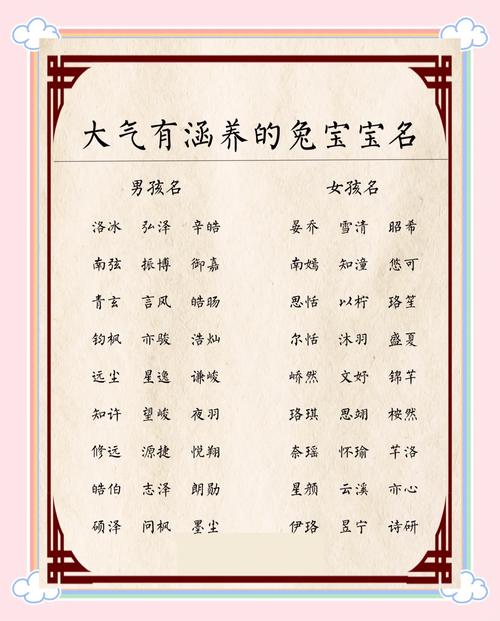 大气有涵养的兔宝宝名
男孩名 女孩名
洛冰 弘泽 辛皓 晏乔 雪清 昭希
南弦 振博 御嘉 南嫣 知潼 悠可
青玄 言风 皓旸 思恬 以柠 珞笙
钧枫 亦骏 浩灿 尔恬 沐羽 盛夏
远尘 星逸 谦峻 峤然 文妤 锦芊
知许 望峻 夜羽 珞琪 思翊 桉然
修远 源捷 悦翔 奈瑶 怀瑜 芊洛
皓伯 志泽 朗勋 星颜 云溪 亦心
硕泽 问枫 墨尘 伊珞 昱宁 诗研